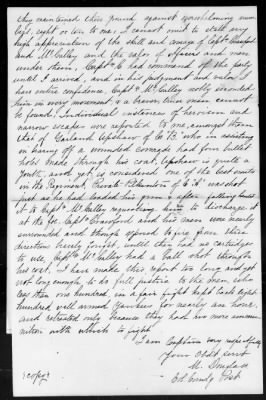 they maintained their ground against overwhelming num-
bers, eight or ten to one; I cannot omit to state my
high appreciation of the skill and energy of Capts
and McCulley and the valor of officers and men
under them. Capt C had command of the party
until I arrived, and in his judgment and valor I
have entire confidence. Capt McCulley nobly seconded
him in every movement, & a braver, truer man cannot
be found. Individual instances of heroism and
narrow escape were reported to me amongst them
that of Garland Upshaw of Co B who in assisting
in bearing off a wounded comrade had four bullet
holes made through his coat. Upshaw is quite a
youth, and yet is considered one of the best scouts
in the Regiment. Private of Co "A" was shot
just as he had loaded his gun & after falling hands
it to Capt McCulley requesting him to discharge it
at the foe. Capt Crawford and his men were nearly
surrounded and though exposed to fire from three
directions bravely fought, until they had no cartridge
to use. Capt McCulley had a ball shot through
his coat. I have made this report too long and yet
not long enough, to do full justice to the men, who
less than one hundred, in a fair fight kept back eight
hundred well armed Yankees for nearly an hour,
and retreated only because they had no more ammu-
nition with which to fight
I am Captain very respectfully
Your Obdt servt
M. Douglass
Col Comdg Post
(copy)